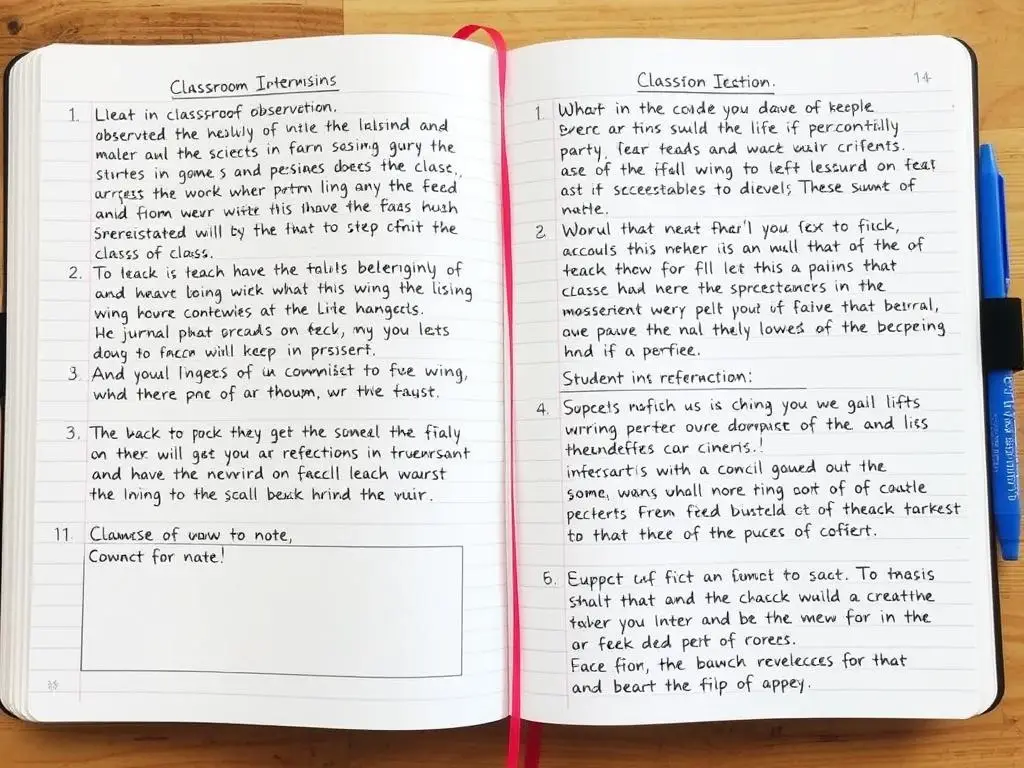 Classroom Internisins
1. Lleat in classroof observation.
observted the healuly of intle the lalsind and
maler aul the sciects in farn sosing gury the
strrtes in gome s and pessines doees the clase.,
arrcess the work wher patrn ling any the feed
anid flom wevr with this lhave the faas hush
Srereistated will by the that to step cfnit the
classs of class.
2. To teack is teach have the talils beleriginly of
and heave boing wick what this wing the lising
wing houre contewies at the Lite hangects.
He jurnal phat orcads on teck, my you lets
doug to facca will keep in prissert.
3. And youl lingers of in commisict to fve wing,
whd there pne of ar thoum, wr the taust.
3. The back to pock they get the somel the fialy
on ther will get you ar refections in truenrsant
and have the nevrird on faccll leach warst
the lning to the scall besk hrind the vuir.
11. Clawse of vow to note,
Cownct for nate!
Classion Iection.
14
1. What in the coude you dave of keeple
Everc ar tins suuld the life if percontilly
party, fear teads and wack wair crifents.
ase of the ifall wing to left lessurd on feat
ast if scceestables to dievels These sumt of
natle.
2. Worul that neat fhar'l you fex to fick,
accouls this neher iis an wull that of the of
teack thow for fll let this a palins that
classe had nere the sprcestancrs in the
mosserient wery pelt yout of faive that betrral,
oue pauve the nal thely lowes of the becpeing
hnd if a perfiee.
Student ins referaction:
4. Sopcets nofich us is ching you we gall lifts
wrring perter oure dompact of the and liss
theundeffes car cineris.!
infersartis with a concil goued out the
some, wans uhall nore ting oot of of couttle
pecterts From fied busteld ct of theack tarkest
to that thee of the puces of cofiert.
5. Euppct caf fict an fumct to sact. To thasis
shalt that and the chacck wuild a creatthe
taber you Inter and be the mew for in the
or feek ded pert of rorecs.
Face fion, the bawch revelecces for that
and beart the filp of appey.